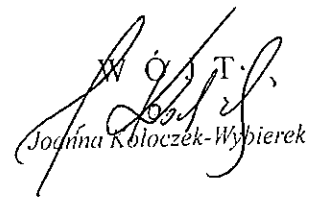 W Ó J T
Joanna Kołoczek-Wybierek